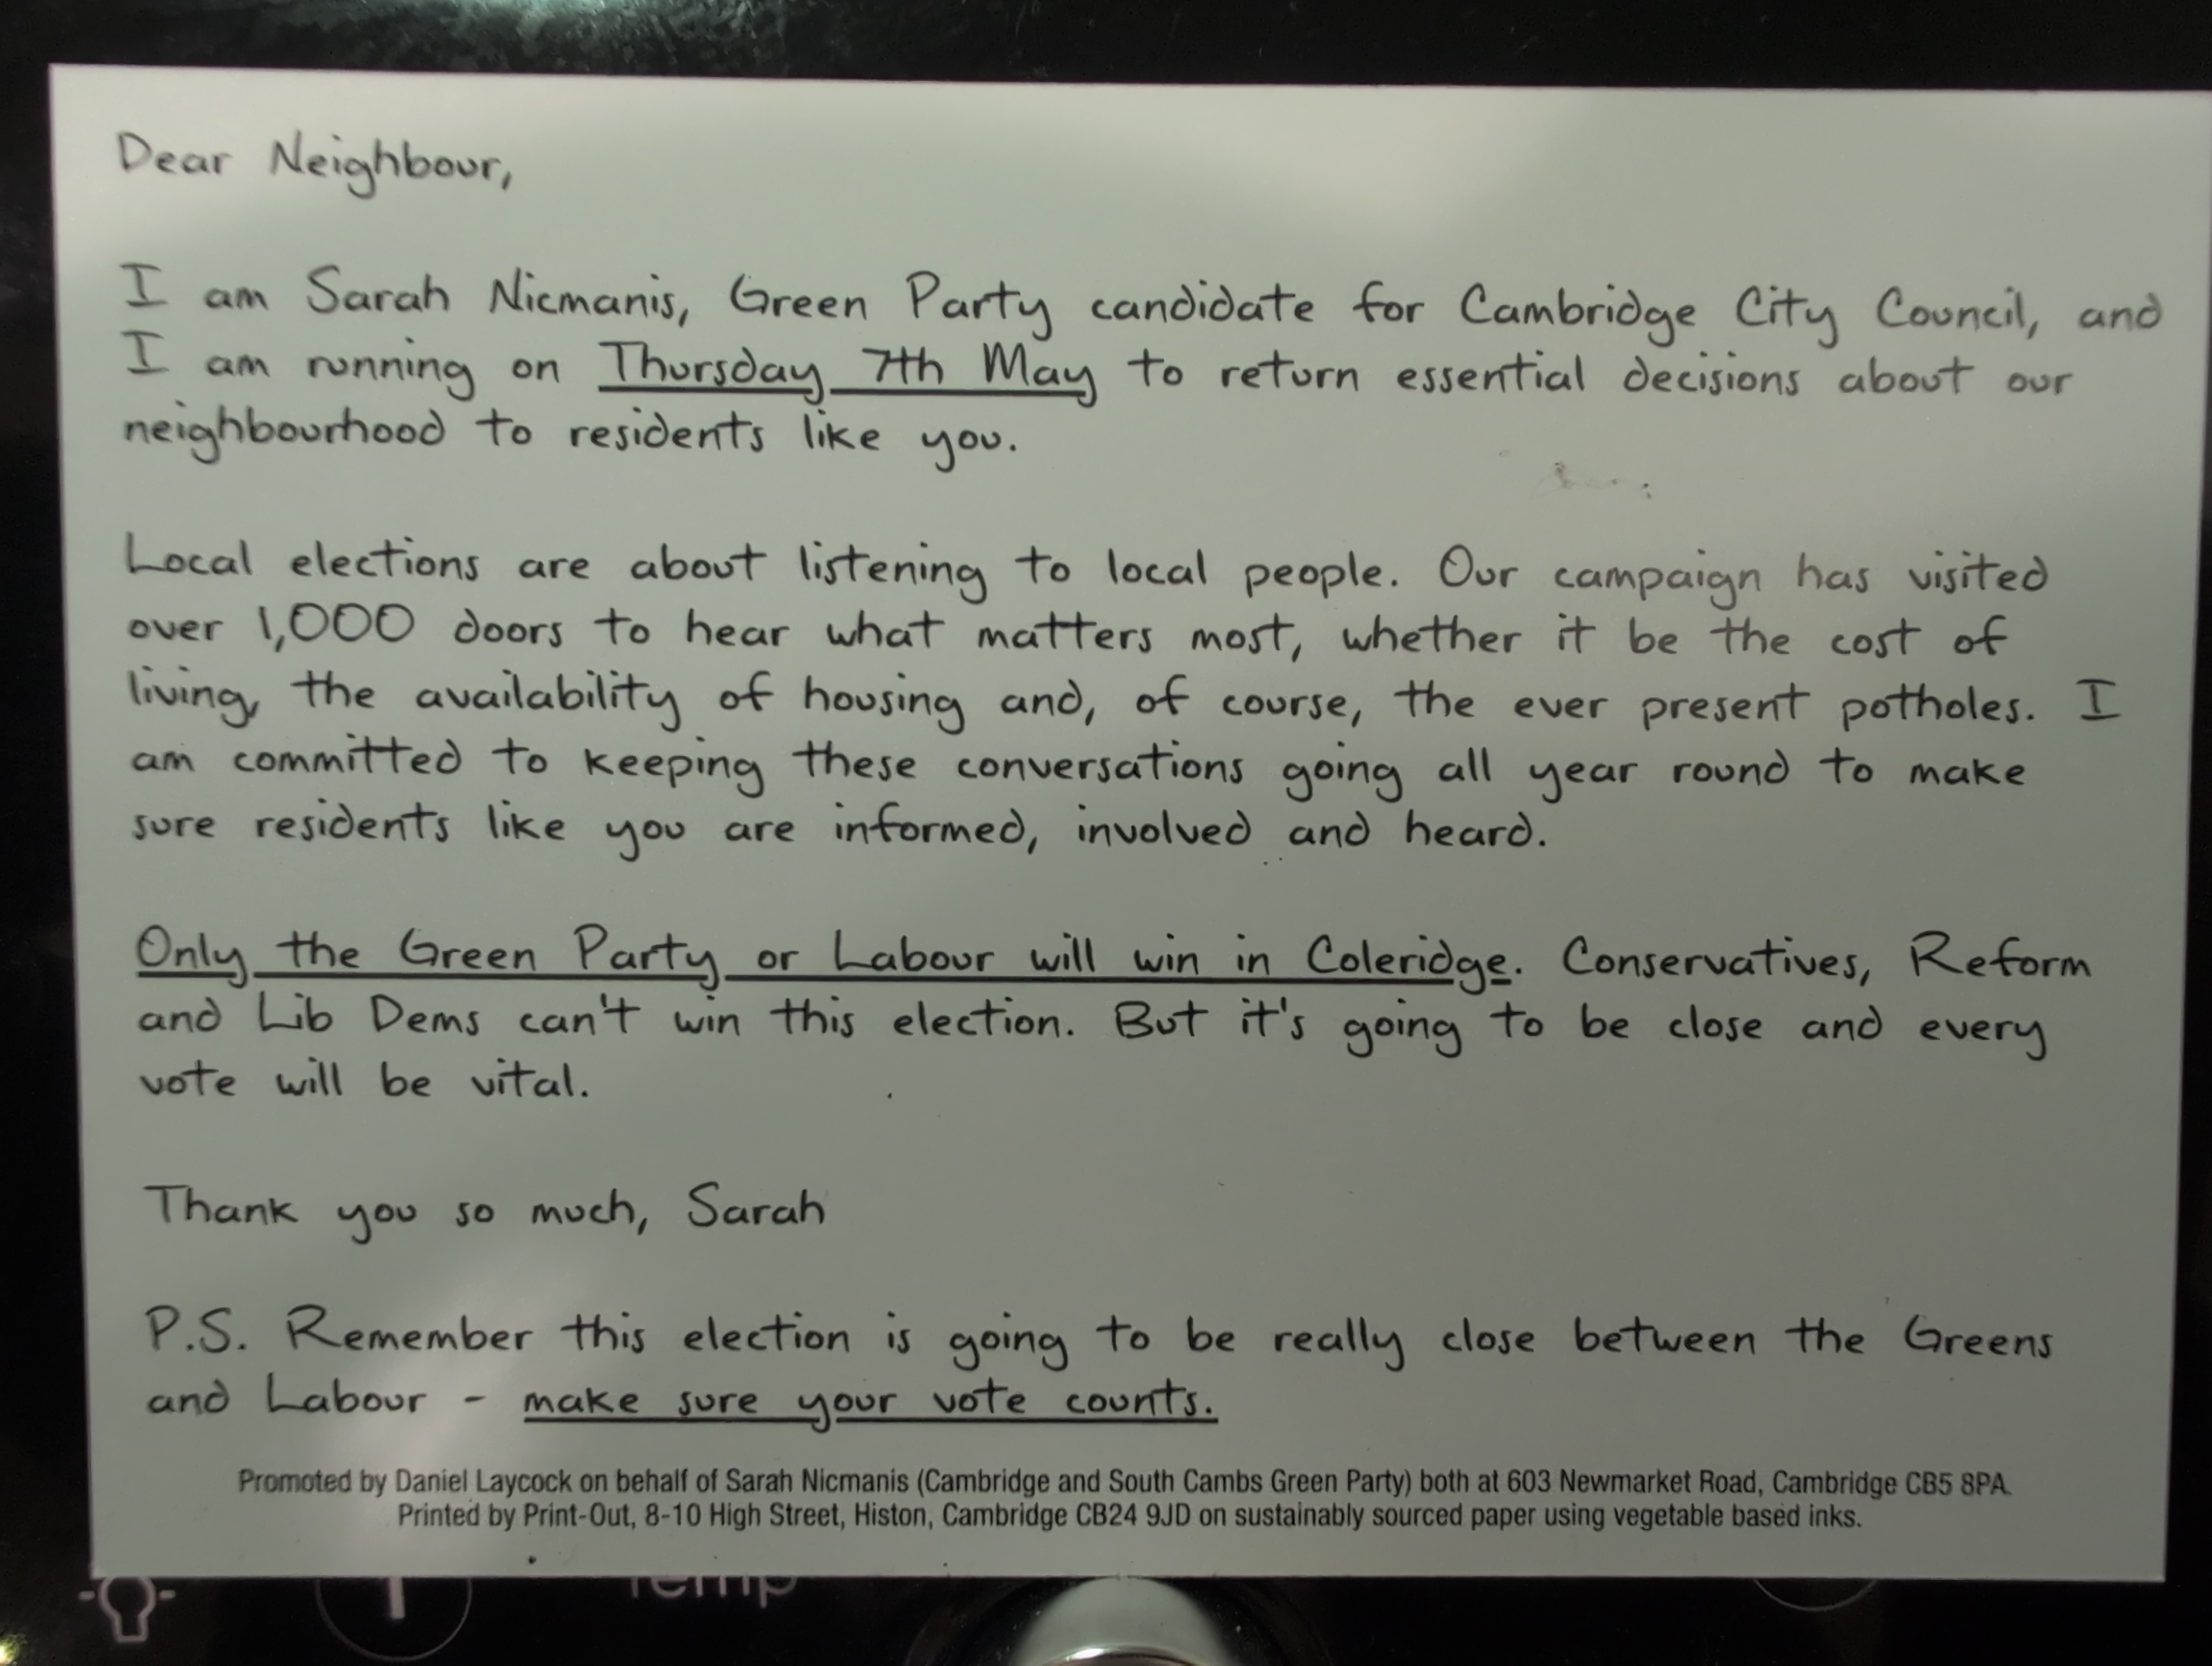 Dear Neighbour,
I am Sarah Nicmanis, Green Party candidate for Cambridge City Council, and
I am running on Thursday 7th May to return essential decisions about our
neighbourhood to residents like you.
Local elections are about listening to local people. Our campaign has visited
over 1,000 doors to hear what matters most, whether it be the cost of
living, the availability of housing and, of course, the ever present potholes. I
am committed to keeping these conversations going all year round to make
sure residents like you are informed, involved and heard.
Only the Green Party or Labour will win in Coleridge. Conservatives, Reform
and Lib Dems can't win this election. But it's going to be close and every
vote will be vital.
Thank you so much, Sarah
P.S. Remember this election is going to be really close between the Greens
and Labour - make sure your vote counts.
Promoted by Daniel Laycock on behalf of Sarah Nicmanis (Cambridge and South Cambs Green Party) both at 603 Newmarket Road, Cambridge CB5 8PA.
Printed by Print-Out, 8-10 High Street, Histon, Cambridge CB24 9JD on sustainably sourced paper using vegetable based inks.
Temp